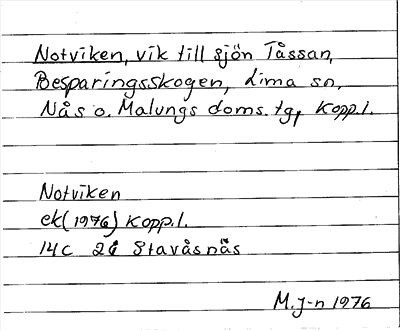 Notviken, vik till sjön Tåssan,
Besparingsskogen, Lima sn,
Nås o. Malungs doms. tg, Kopp.l.
Notviken
ek(1976) Kopp.l.
14C 2c Stavåsnäs
M.J-n 1976